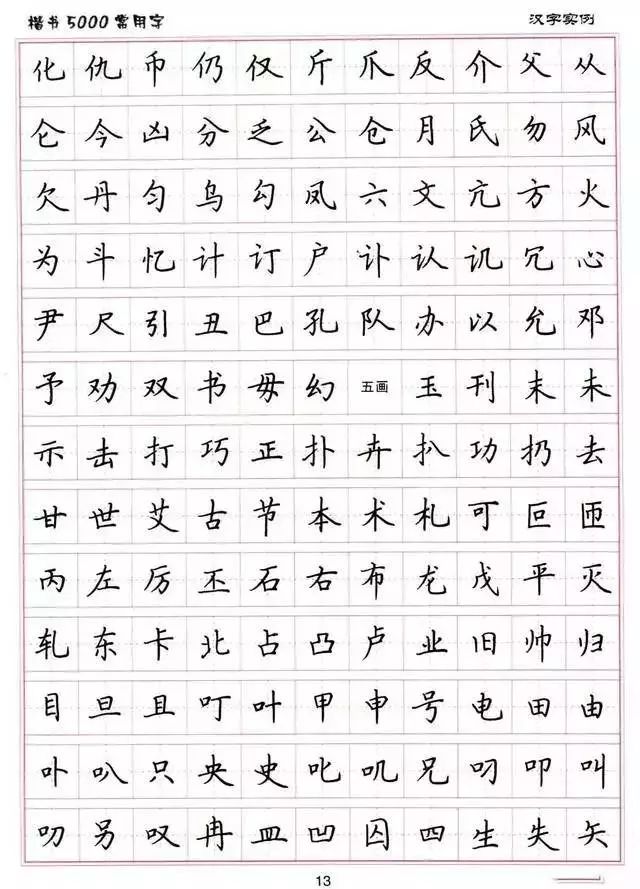 楷书5000常用字 汉字实例
化仇币仍仅斤爪反介父从
仑今凶分乏公仓月氏勿风
欠丹匀乌勾凤六文亢方火
为斗忆计订户讣认讥冗心
尹尺引丑巴孔队办以允邓
予劝双书毋幻五画玉刊末未
示击打巧正扑卉扒功扔去
甘世艾古节本术札可叵匝
丙左厉丕石右布龙戊平灭
轧东卡北占凸卢业旧帅归
目旦且叮叶甲申号电田由
卟叭只央史叱叽兄叼叩叫
叻另叹冉皿凹囚四生失矢
13